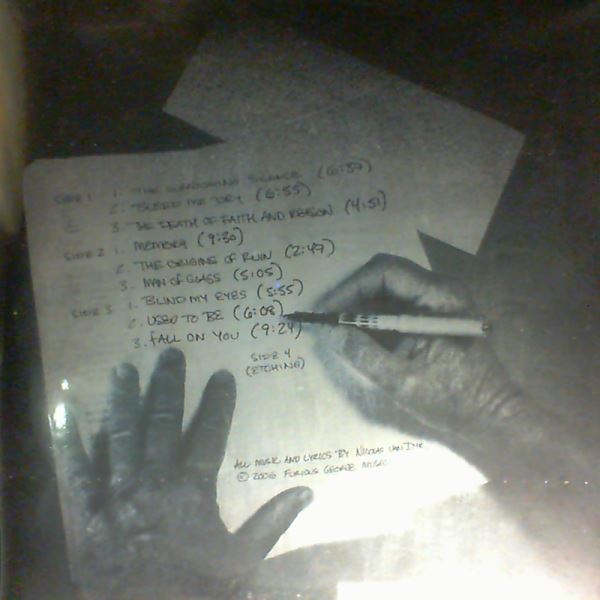 SIDE 1 1. THE SURROUNDING SILENCE (6:37)
2. BLEED ME DRY (6:55)
3. THE DEATH OF FAITH AND REASON (4:51)
SIDE 2 1. MEMORY (9:30)
2. THE ORIGINS OF RUIN (2:47)
3. MAN OF GLASS (5:05)
SIDE 3 1. BLIND MY EYES (5:55)
2. USED TO BE (6:08)
3. FALL ON YOU (9:24)
SIDE 4
(ETCHING)
ALL MUSIC AND LYRICS BY NICOLAS VAN DYK
© 2006 FURIOUS GEORGE MUSIC